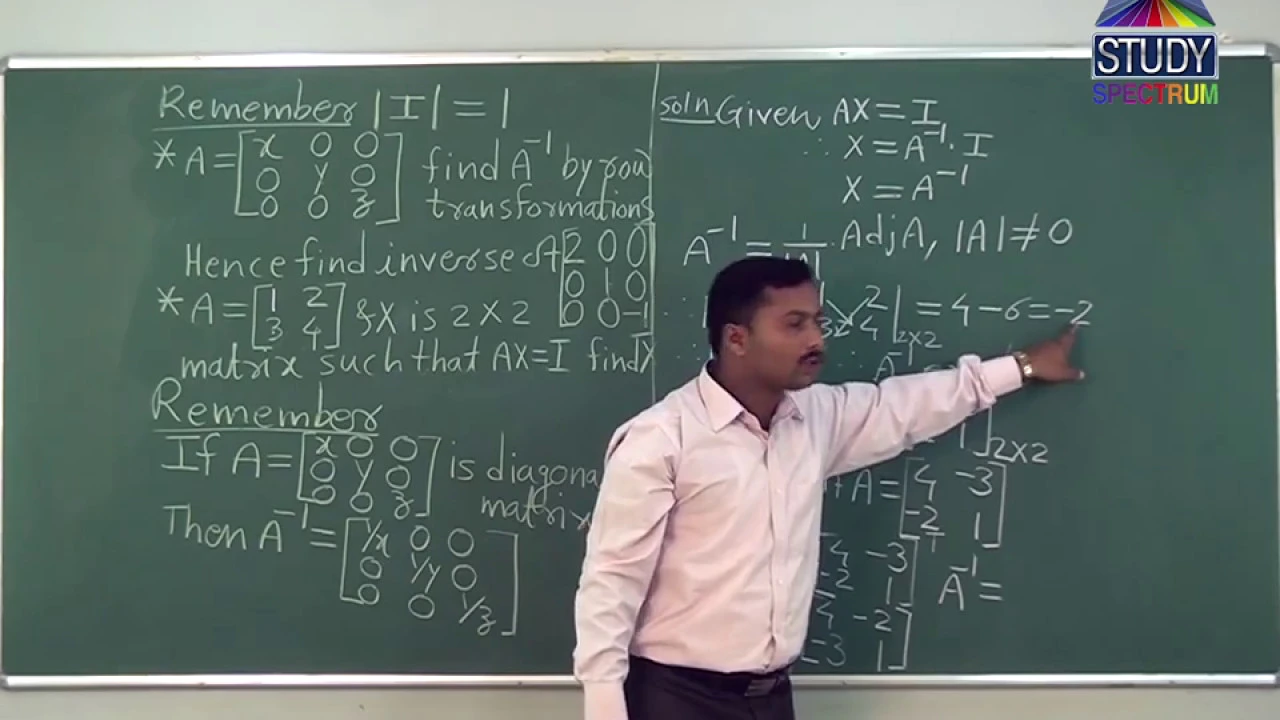 STUDY
SPECTRUM
Remember |I| = 1
* A = [x 0 0
0 y 0
0 0 z] find A⁻¹ by row
transformations
Hence find inverse of [2 0 0
0 1 0
0 0 -1]
* A = [1 2
3 4] & X is 2 X 2
matrix such that AX = I find X
Remember
If A = [x 0 0
0 y 0
0 0 z] is diagonal
matrix
Then A⁻¹ = [1/x 0 0
0 1/y 0
0 0 1/z]
soln Given AX = I
∴ X = A⁻¹. I
X = A⁻¹
A⁻¹ = 1/|A| . Adj A, |A| ≠ 0
2
4| 2x2 = 4 - 6 = -2
A⁻¹
1] 2X2
A = [4 -3
-2 1]
4 -3
-2 1]
4 -2
-3 1]
A⁻¹ =